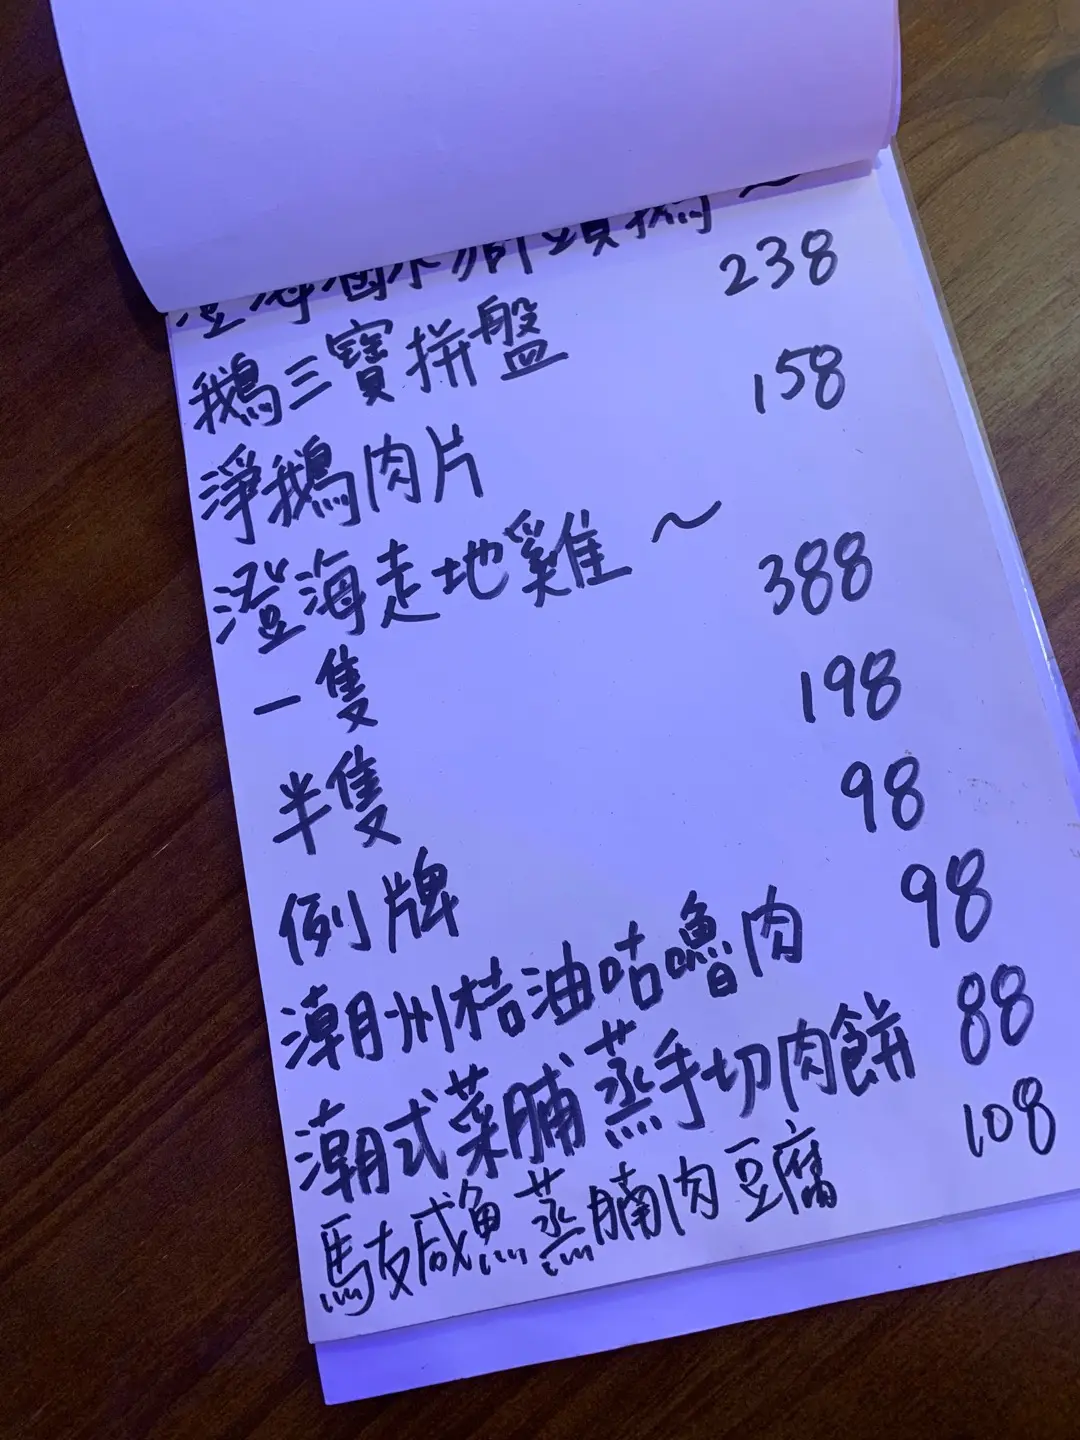 澄海滷水獅頭鵝 ～
鵝三寶拼盤 238
淨鵝肉片 158
澄海走地雞 ～
一隻 388
半隻 198
例牌 98
潮州桔油咕嚕肉 98
潮式菜脯蒸手切肉餅 88
馬友咸魚蒸腩肉豆腐 108